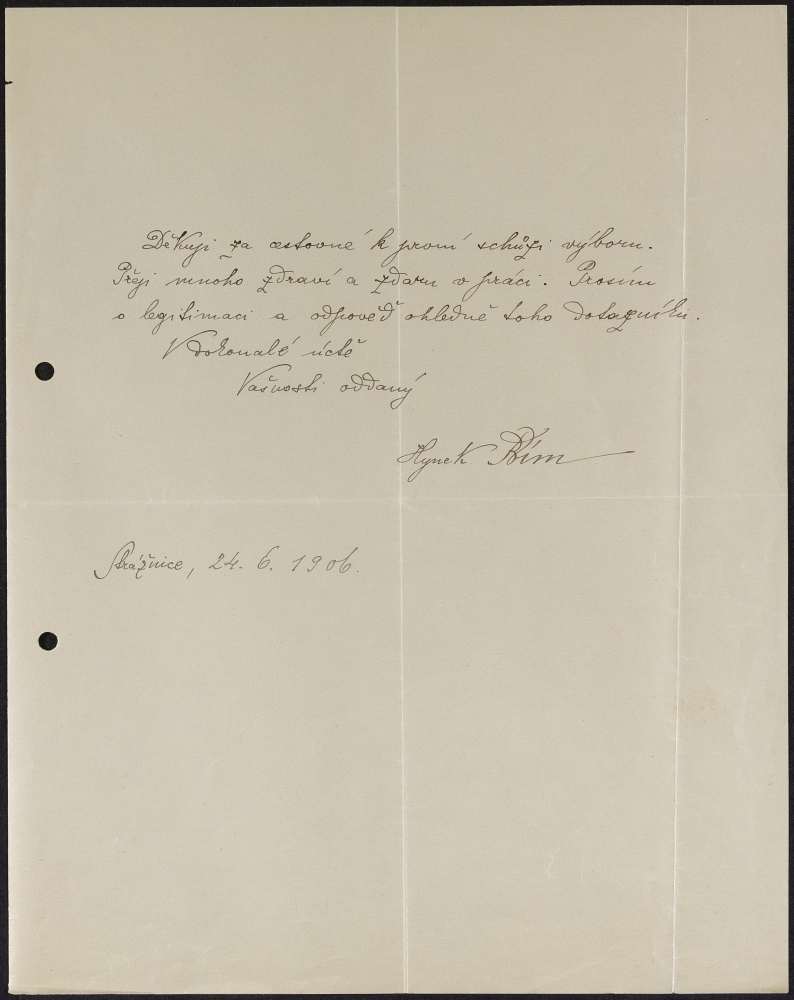 Děkuji za cestovné k první schůzi výboru.
Přeji mnoho zdraví a zdaru v práci. Prosím
o legitimaci a odpověď ohledně toho dotazníku.
V dokonalé úctě
Vašnosti oddaný
Hynek Bím
Strážnice, 24. 6. 1906.